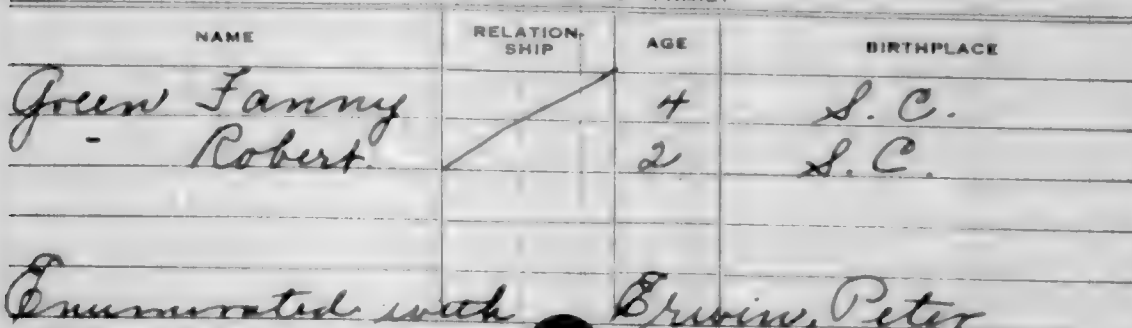 NAME RELATION- SHIP AGE BIRTHPLACE
Green Fanny 4 S. C.
- Robert 2 S. C.
Enumerated with Erwin, Peter